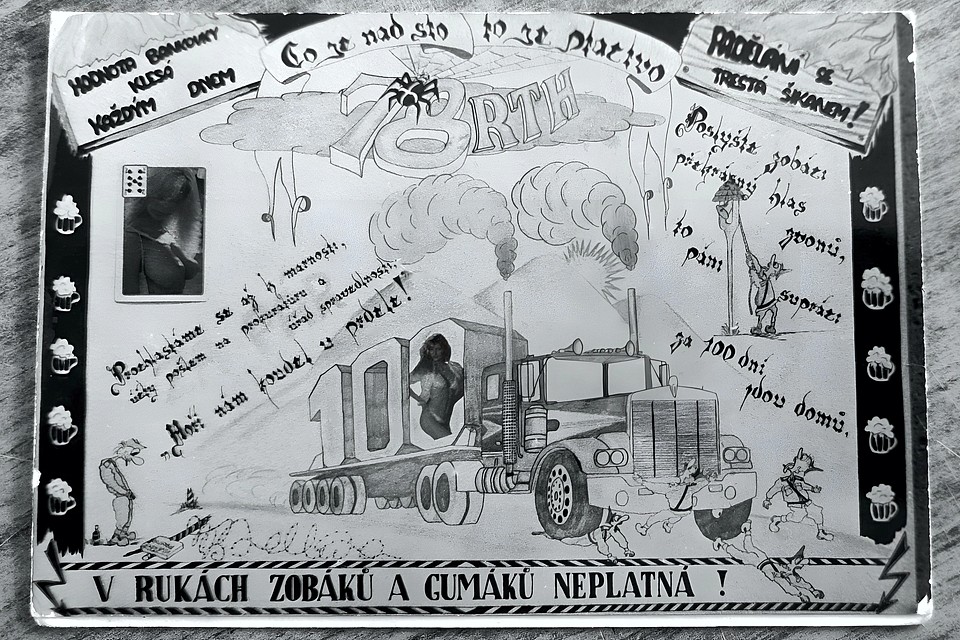 HODNOTA BANKOVKY
KLESÁ
KAŽDÝM DNEM
Co je nad sto to je plativo
PADĚLÁNÍ SE
TRESTÁ ŠIKANEM!
78RTH
Poslyšte zobáci
překrásný hlas
to zvonů,
páni supráci
za 100 dní
jdou domů.
Prohlašťáme se až k marnosti,
účty pošlem na prokuraturu a
úřad spravedlnosti.
„Hoří nám koudel u prdele!
100
V RUKÁCH ZOBÁKŮ A GUMÁKŮ NEPLATNÁ !